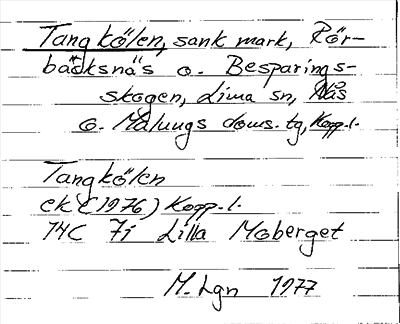 Tangkölen, sank mark, Rör-
bäcksnäs o. Besparings-
skogen, Lima sn, Nås
o. Malungs doms. tg, Kopp. l.
Tangkölen
ek (1976) Kopp. l.
14C 7i Lilla Moberget
M. Lgn 1977